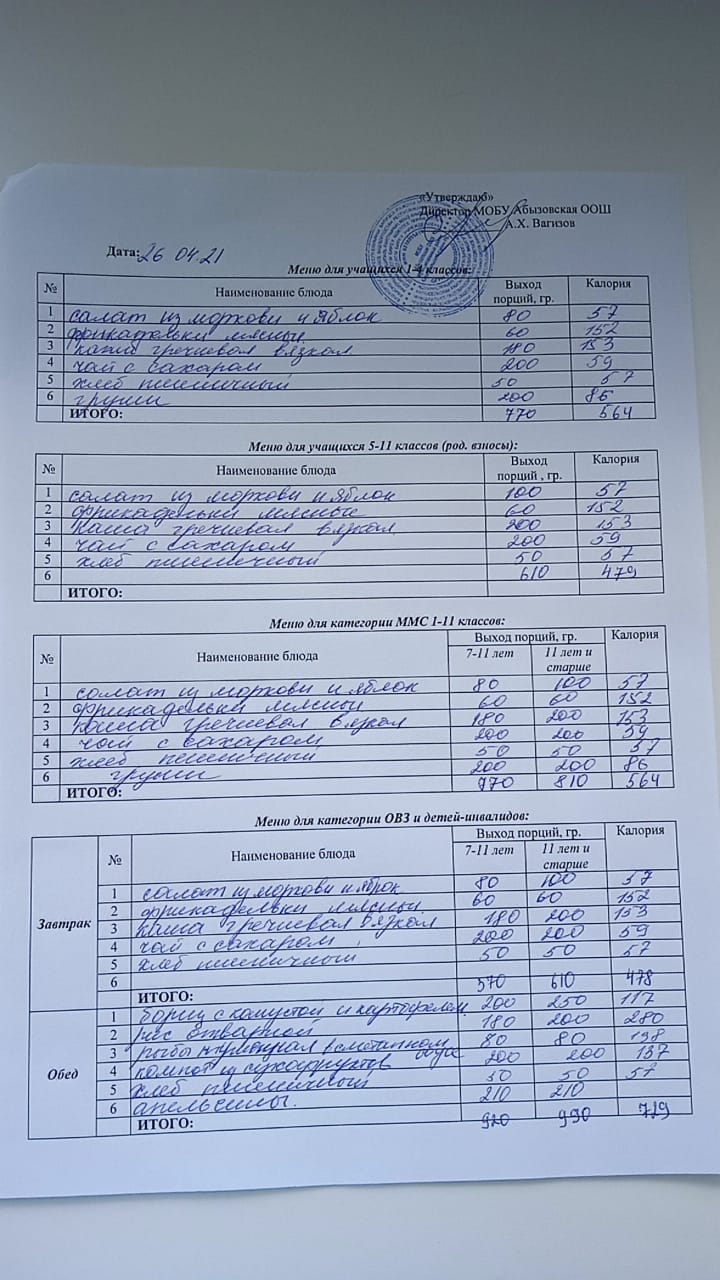 «Утверждаю»
Директор МОБУ Абызовская ООШ
А.Х. Вагизов
Дата: 26 04 21
Меню для учащихся 1-4 классов:
№ Наименование блюда Выход порций, гр. Калория
1 салат из моркови и яблок 80 57
2 фрикадельки мясные 60 152
3 каша гречневая вязкая 180 153
4 чай с сахаром 200 59
5 хлеб пшеничный 50 57
6 груши 200 86
ИТОГО: 770 564
Меню для учащихся 5-11 классов (род. взносы):
№ Наименование блюда Выход порций , гр. Калория
1 салат из моркови и яблок 100 57
2 фрикадельки мясные 60 152
3 Каша гречневая вязкая 200 153
4 чай с сахаром 200 59
5 хлеб пшеничный 50 57
6 610 479
ИТОГО:
Меню для категории ММС 1-11 классов:
№ Наименование блюда Выход порций, гр. Калория
7-11 лет 11 лет и старше
1 салат из моркови и яблок 80 100 57
2 фрикадельки мясные 60 60 152
3 каша гречневая вязкая 180 200 153
4 чай с сахаром 200 200 59
5 хлеб пшеничный 50 50 57
6 груши 200 200 86
ИТОГО: 770 810 564
Меню для категории ОВЗ и детей-инвалидов:
№ Наименование блюда Выход порций, гр. Калория
7-11 лет 11 лет и старше
Завтрак
1 салат из моркови и яблок 80 100 57
2 фрикадельки мясные 60 60 152
3 каша гречневая вязкая 180 200 153
4 чай с сахаром 200 200 59
5 хлеб пшеничный 50 50 57
6
ИТОГО: 570 610 478
Обед
1 борщ с капустой и картофелем 200 250 117
2 рис отварной 180 200 280
3 рыбы в сметанном соусе 80 80 128
4 компот из сухофруктов 200 200 137
5 хлеб пшеничный 50 50 57
6 апельсины. 210 210
ИТОГО: 920 990 719